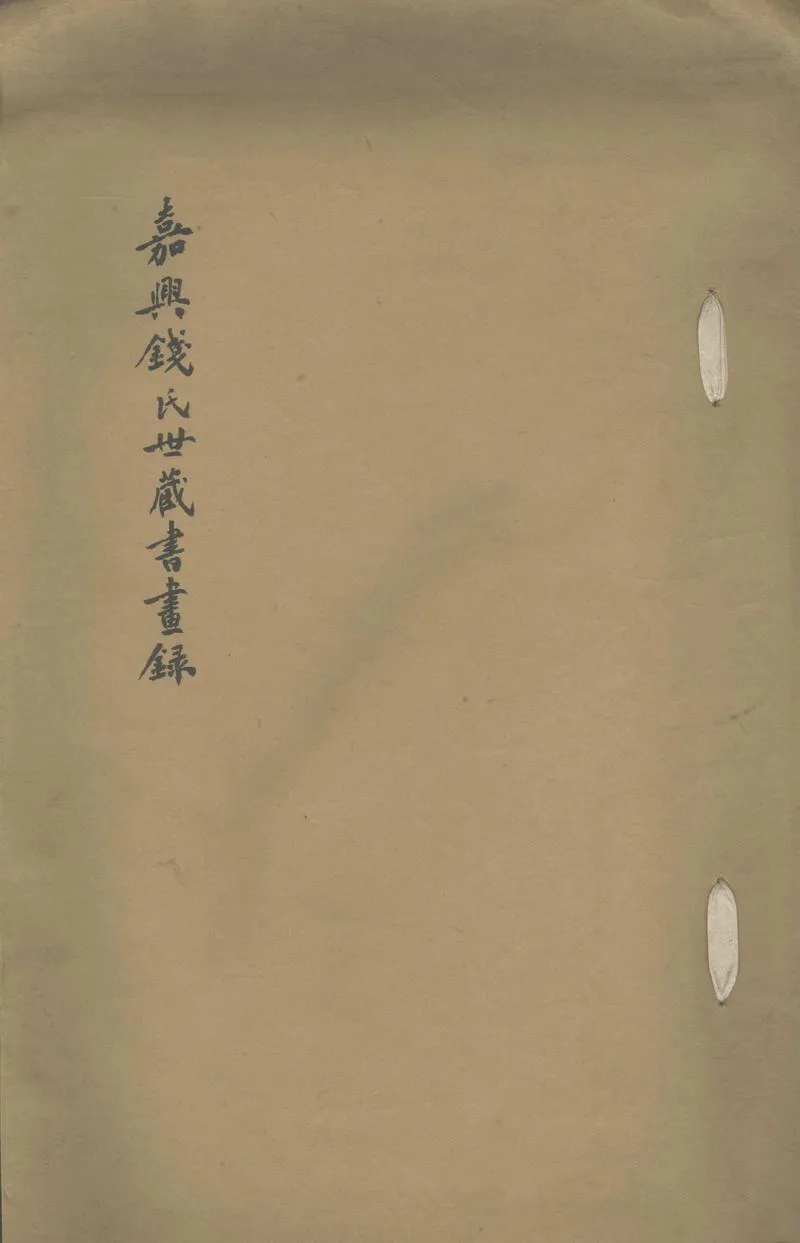 嘉興錢氏世藏書畫錄